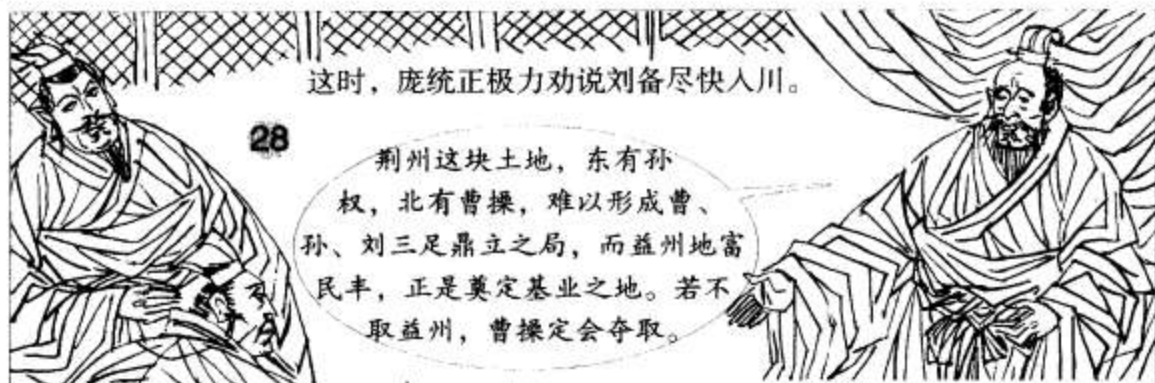 这时，庞统正极力劝说刘备尽快入川。
28
荆州这块土地，东有孙
权，北有曹操，难以形成曹、
孙、刘三足鼎立之局，而益州地富
民丰，正是奠定基业之地。若不
取益州，曹操定会夺取。